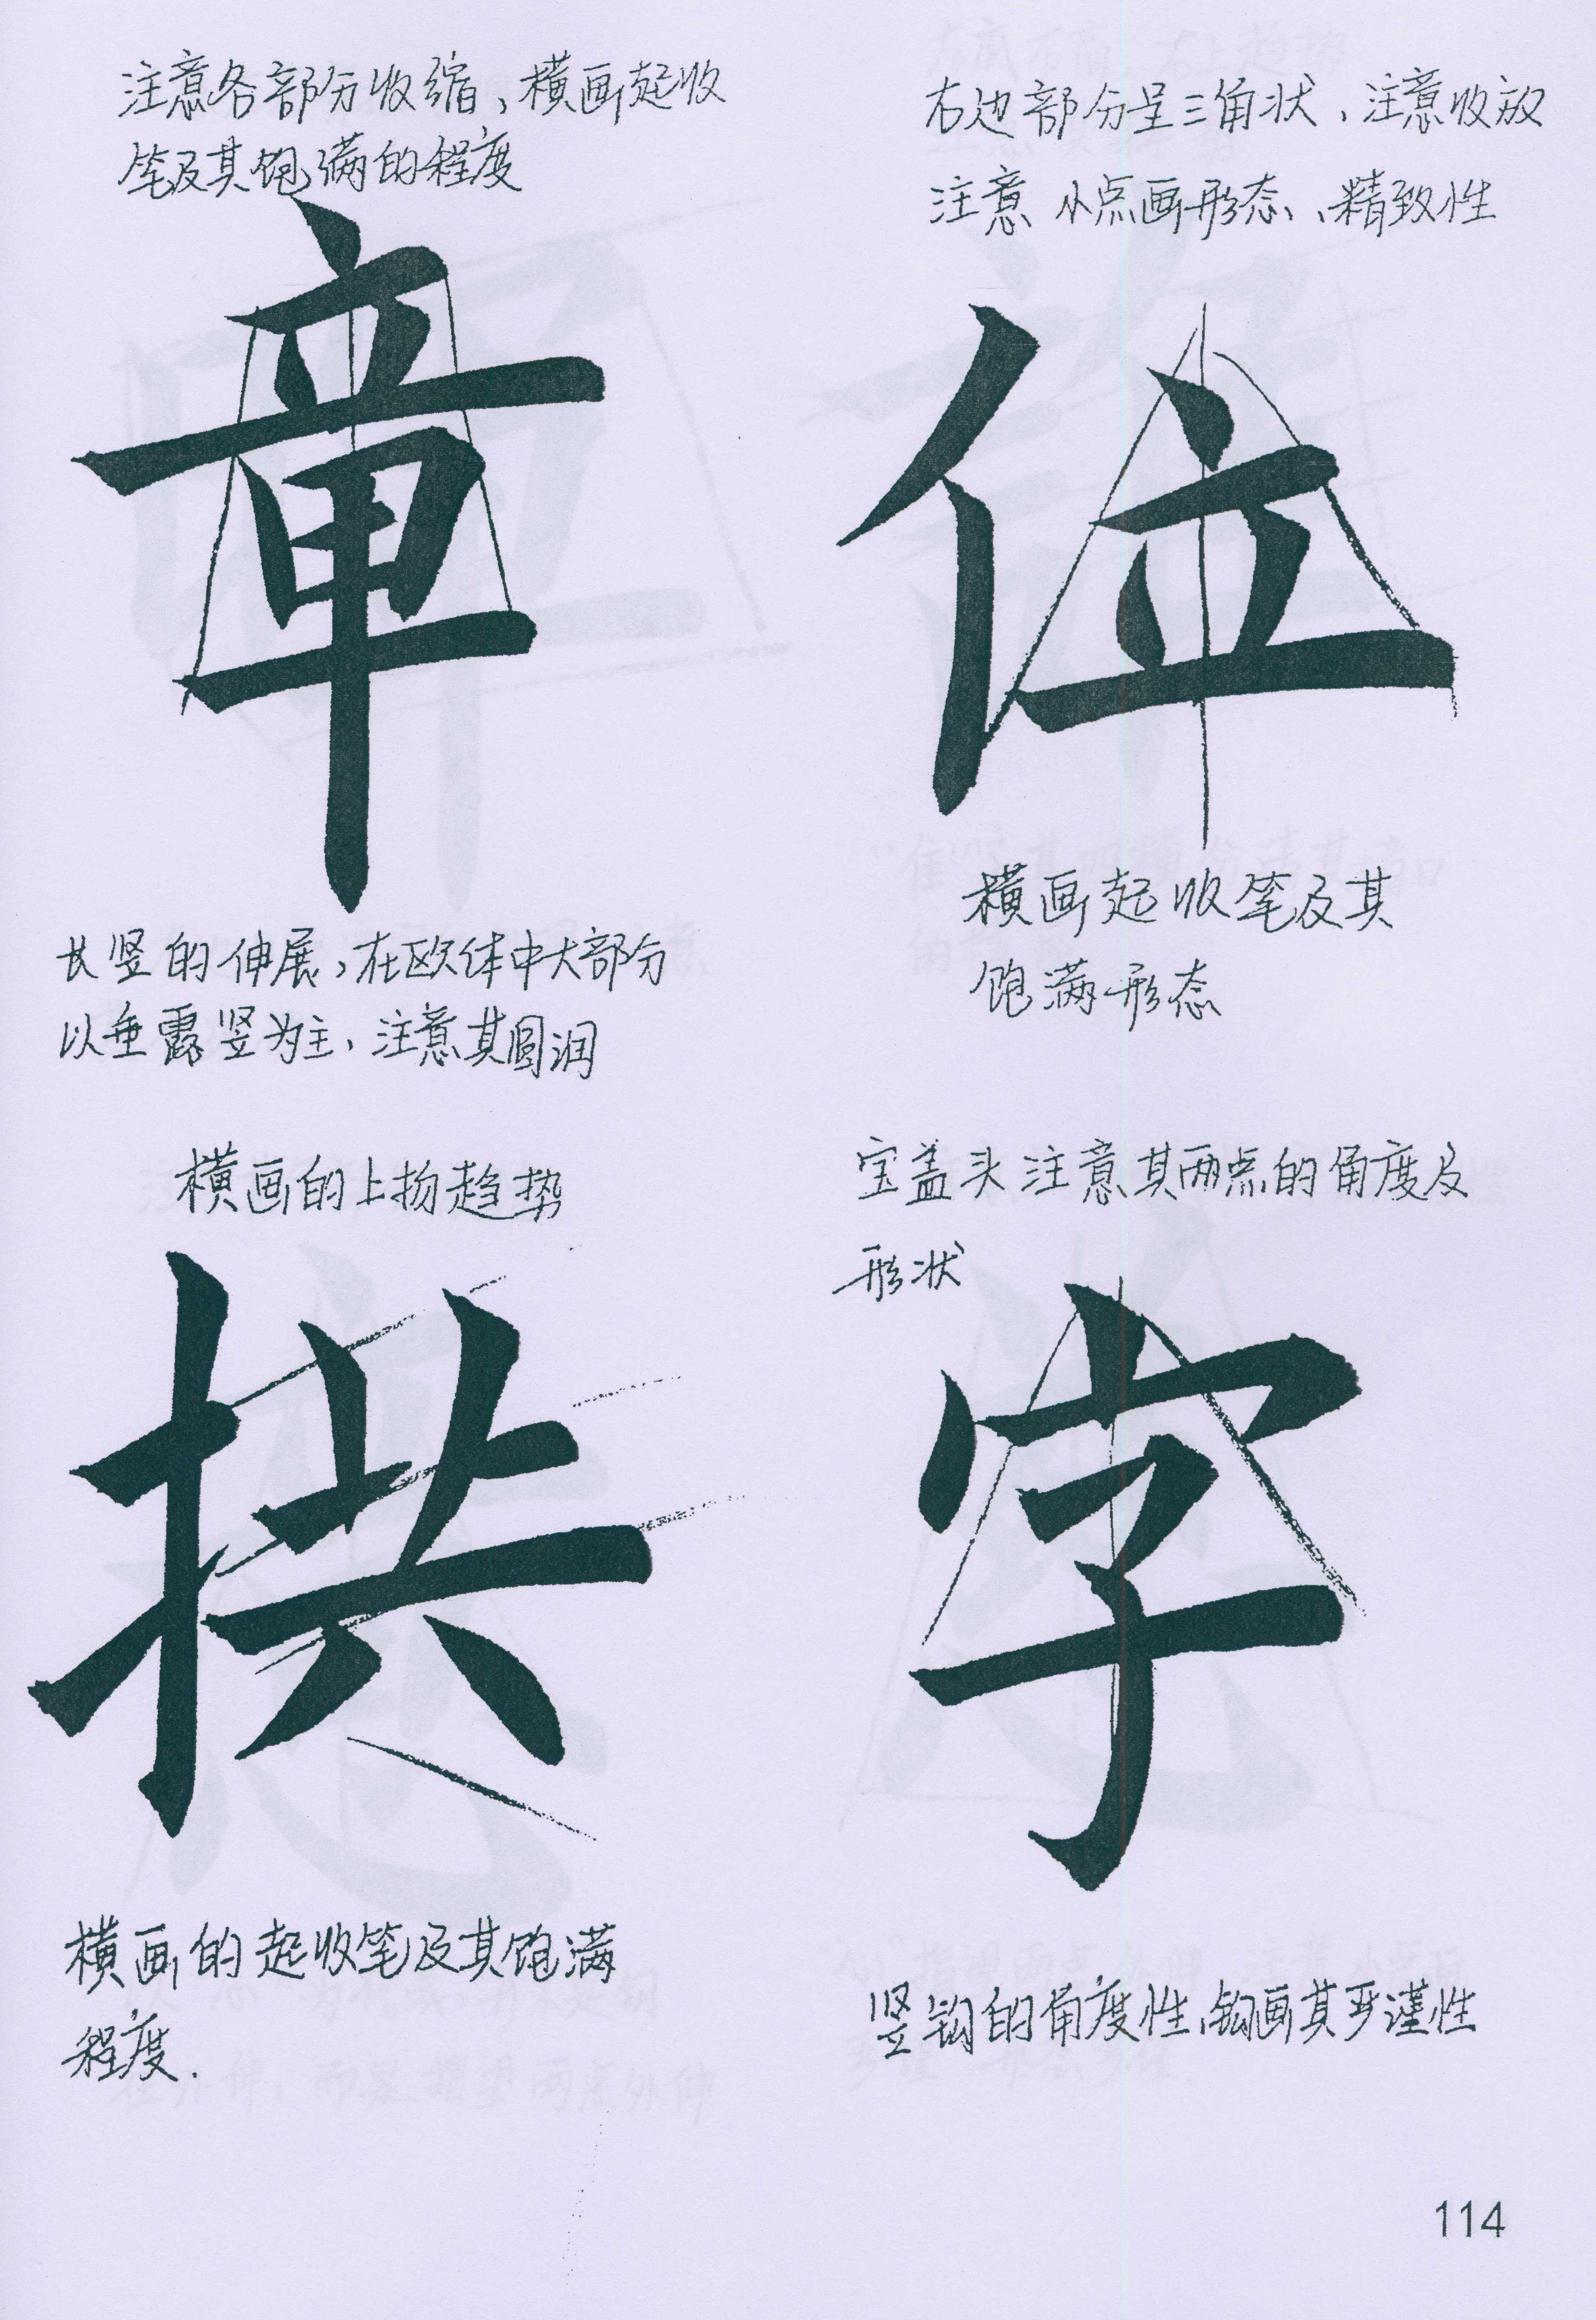 注意各部分收缩、横画起收
笔及其饱满的程度
章
长竖的伸展,在欧体中大部分
以垂露竖为主、注意其圆润
右边部分呈三角状、注意收放
注意小点画形态、精致性
位
横画起收笔及其
饱满形态
横画的上扬趋势
拱
横画的起收笔及其饱满
程度.
宝盖头注意其两点的角度及
形状
字
竖钩的角度性、钩画其严谨性
114